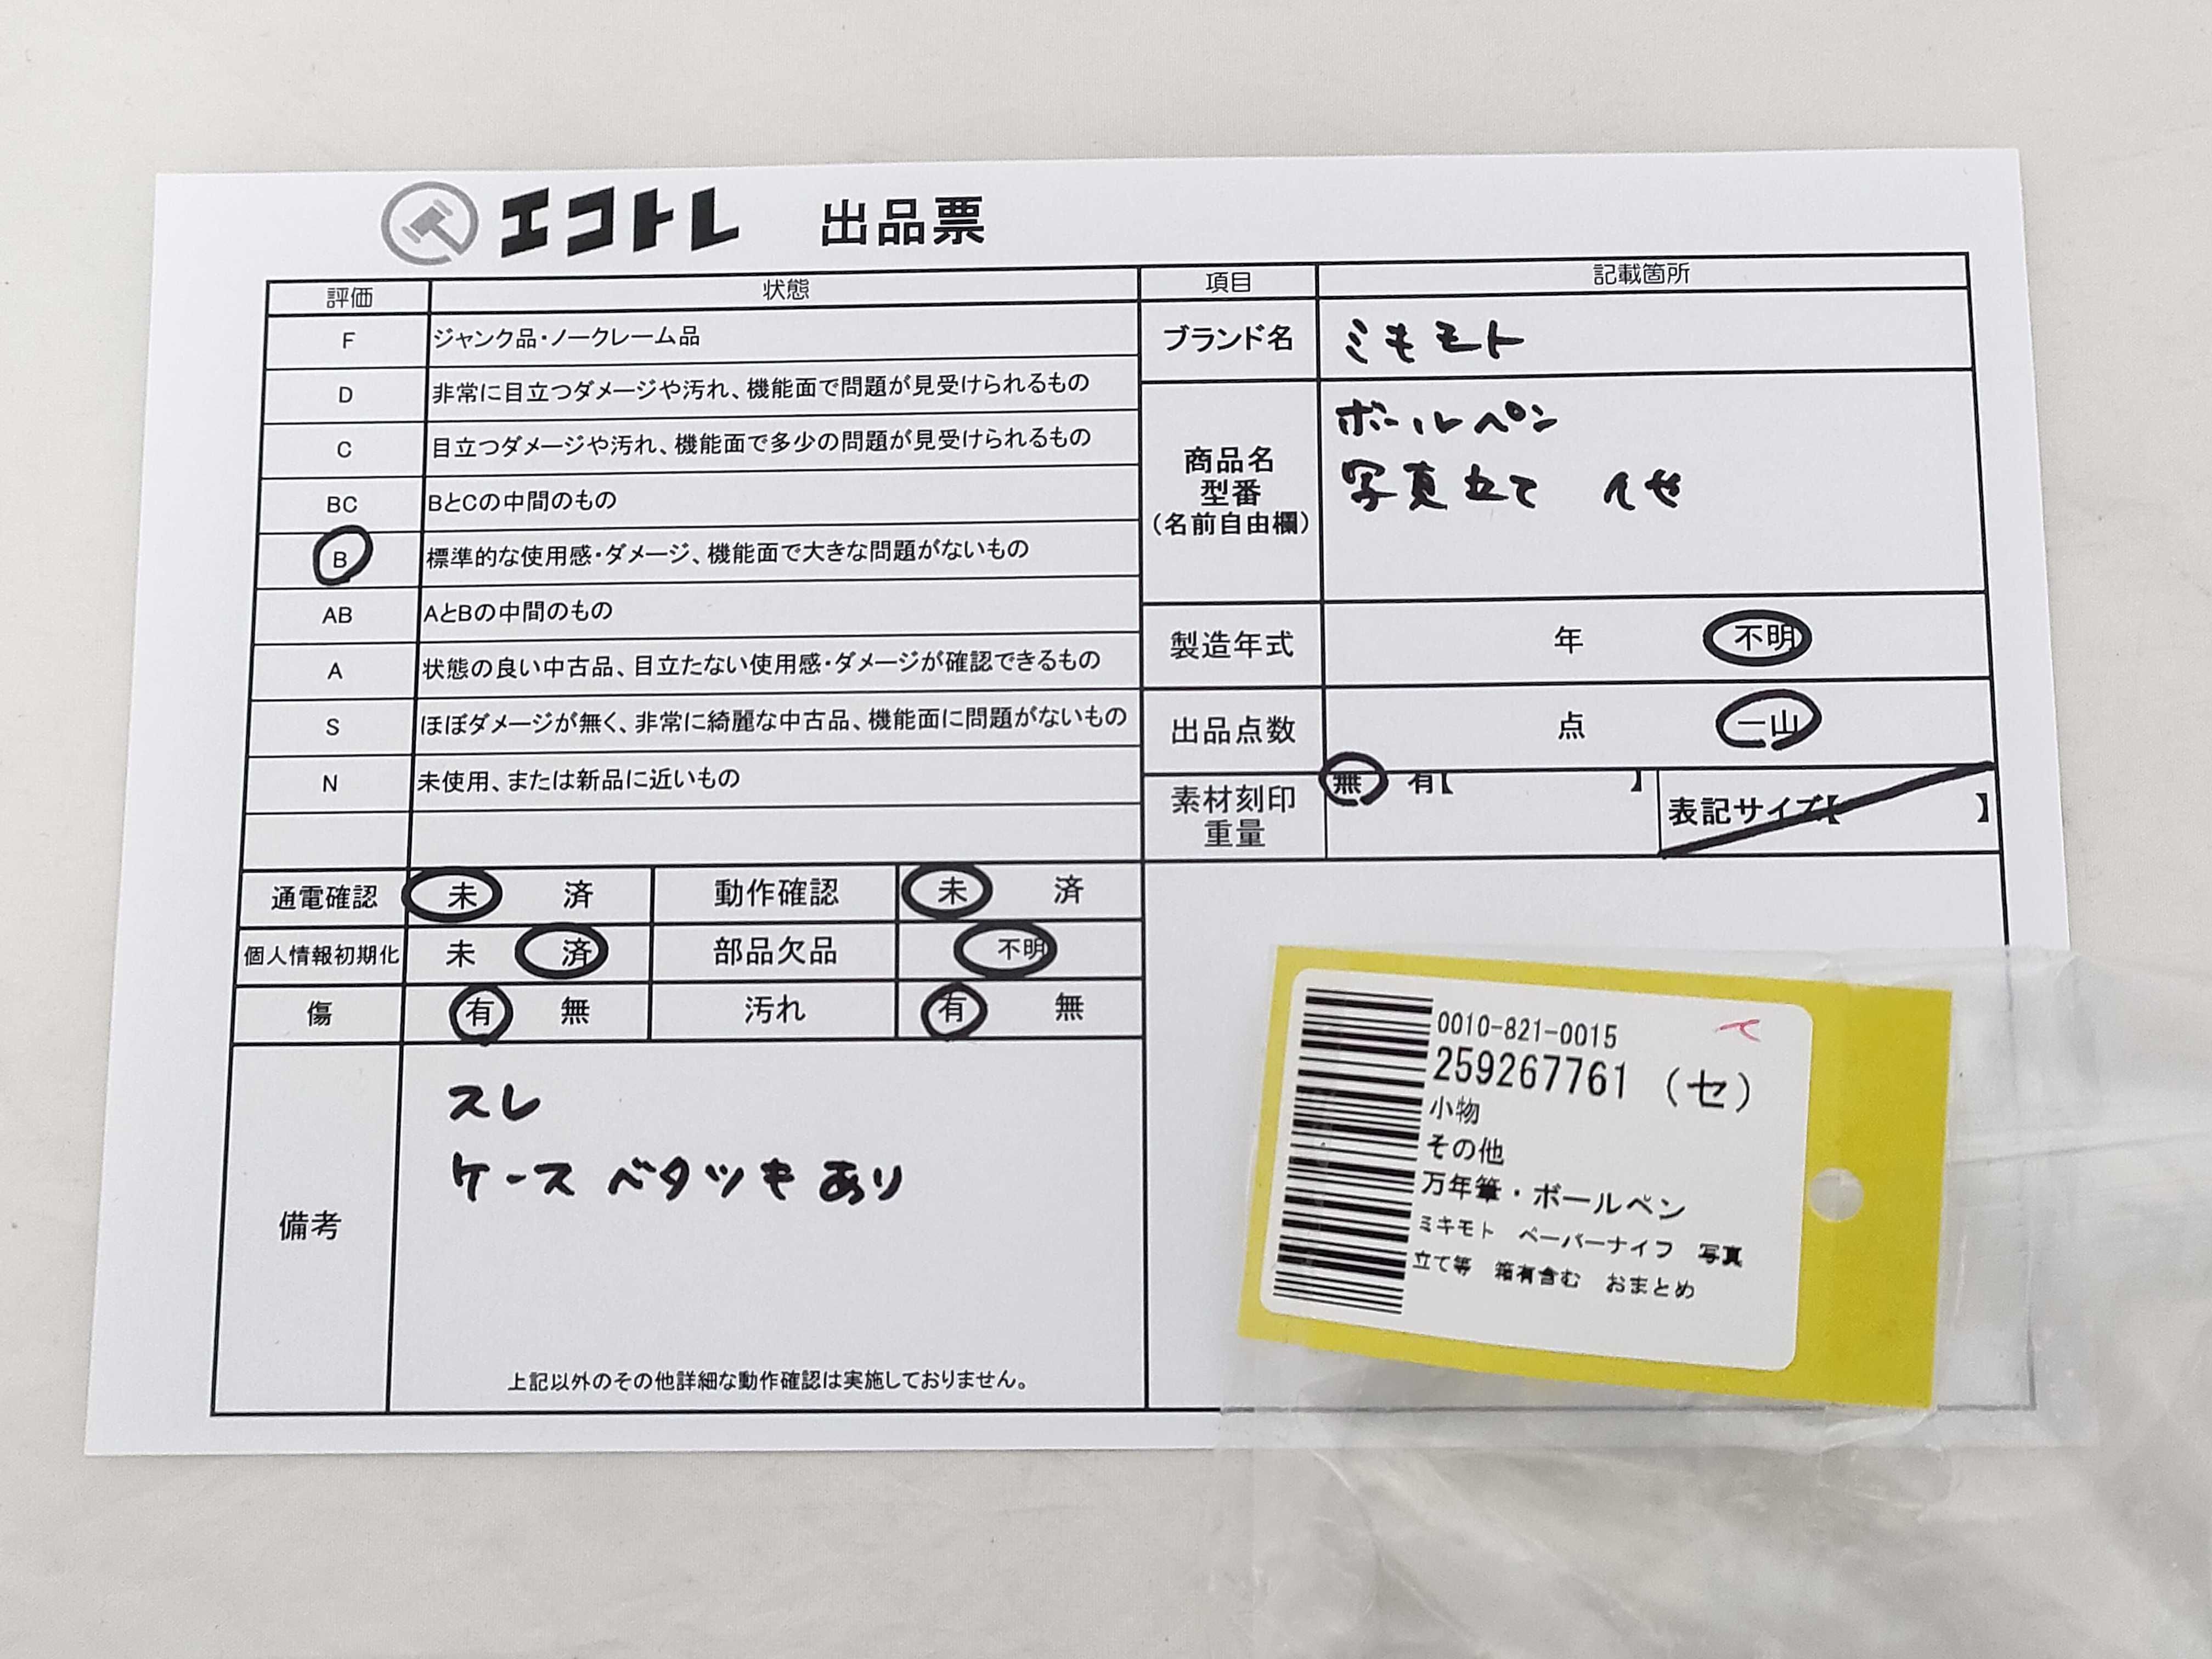 エコトレ 出品票
評価 状態
F ジャンク品・ノークレーム品
D 非常に目立つダメージや汚れ、機能面で問題が見受けられるもの
C 目立つダメージや汚れ、機能面で多少の問題が見受けられるもの
BC BとCの中間のもの
B 標準的な使用感・ダメージ、機能面で大きな問題がないもの
AB AとBの中間のもの
A 状態の良い中古品、目立たない使用感・ダメージが確認できるもの
S ほぼダメージが無く、非常に綺麗な中古品、機能面に問題がないもの
N 未使用、または新品に近いもの
通電確認 未 済 動作確認 未 済
個人情報初期化 未 済 部品欠品 不明
傷 有 無 汚れ 有 無
備考
スレ
ケース ベタツキ あり
上記以外のその他詳細な動作確認は実施しておりません。
項目 記載箇所
ブランド名 ミキモト
商品名
型番
(名前自由欄)
ボールペン
写真立て
製造年式 年 不明
出品点数 点 一山
素材刻印
重量
無 有【 】 表記サイズ【 】
0010-821-0015
259267761 (セ)
小物
その他
万年筆・ボールペン
ミキモト ペーパーナイフ 写真
立て等 箱有含む おまとめ